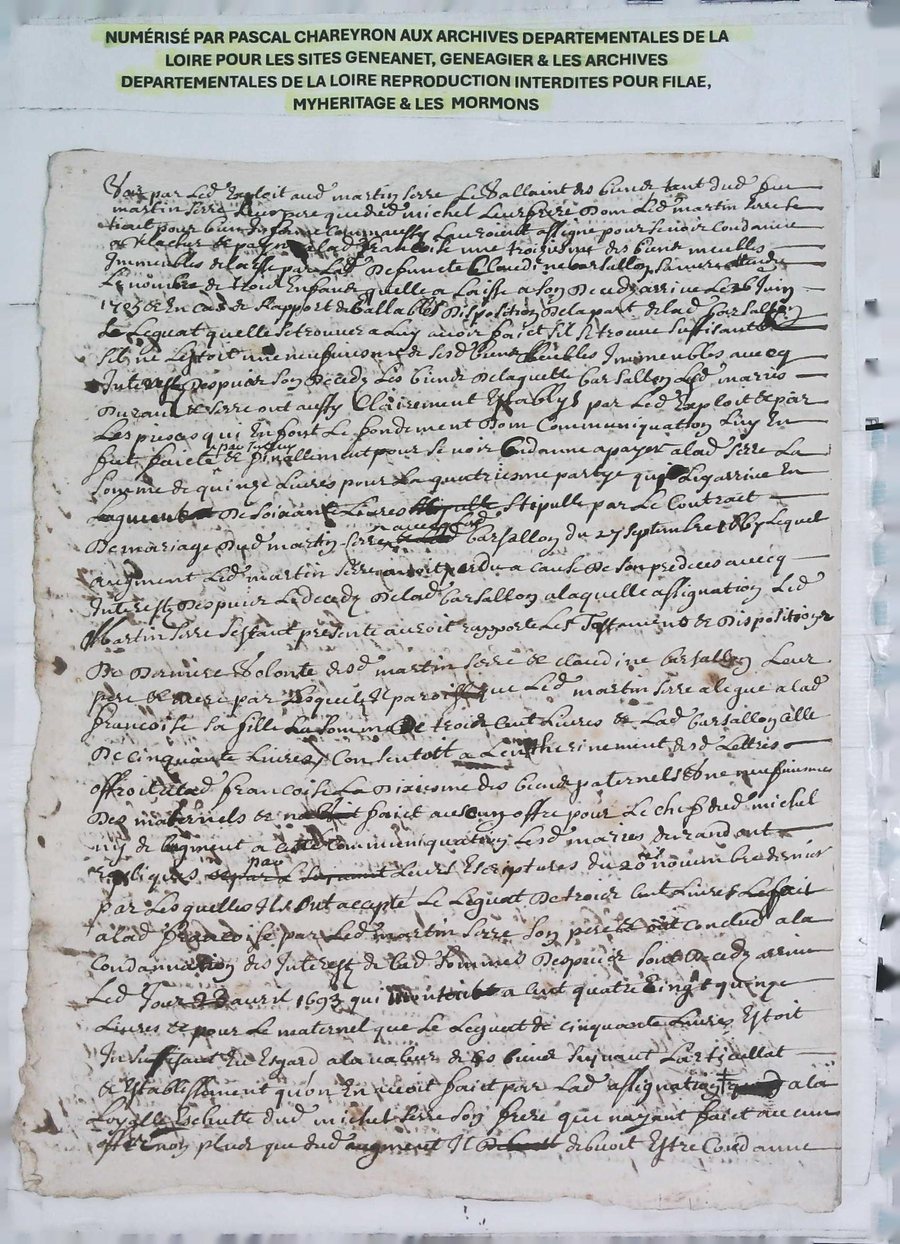 NUMÉRISÉ PAR PASCAL CHAREYRON AUX ARCHIVES DEPARTEMENTALES DE LA
LOIRE POUR LES SITES GENEANET, GENEAGIER & LES ARCHIVES
DEPARTEMENTALES DE LA LOIRE REPRODUCTION INTERDITES POUR FILAE,
MYHERITAGE & LES MORMONS
par Led Exploit aud martin Serre tant dud feu
martin Serre Leur pere que dud michel Leur frere Dom Led martin Serre Se
pour bien assigné pour se voir Condanné
de payer alad francoise une troisieme des biens meubles
Immeubles par Lad Deffuncte Claudine barsallon
Le nombre de trois Enfants quelle a Laissé a Son Deceds arrivé Le 26 Juin
1705 & En Cas de Rapport de Vallable Disposition De la part de lad barsallon
Le Leguat quelle Se trouvera Luy avoir faict Sil Se trouve Suffisant
Sil ne Lestoit une neufvieme de Sesd biens Meubles Immeubles avecq
Interest Despuis Son Decedz Les biens De laquelle barsallon Led mariés
Durand & Serre ont aussy Clairement Establys par Led Exploit & par
Les pieces qui En font Le fondement Dom Communiquation Luy En
fut faicte & finallement pour Se voir Condanné a payer alad Serre La
Somme de quinze Livres pour La quatriesme partye qui
De Soixante Livres Stipullé par Le Contract
De mariage Dud martin Serre barsallon du 27 Septembre 1667 Lequel
augment Led martin Serre avoit perdu a cause De Son predeces avecq
Interest Despuis Le decedz De lad barsallon a laquelle assignation Led
Martin Serre Sestant presenté auroit rapporté Les Testaments & Dispositions
De Derniere Volonté desd martin Serre & Claudine barsallon Leur
pere & mere par Lesquels Il que Led martin Serre a legué a lad
francoise Sa fille La Somme de trois Cent Livres & Lad barsallon Celle
De Cinquante Livres Consentoit a Lentherinement desd Lettres
offroit alad francoise La Dixiesme des biens paternels & une neufvieme
Des maternels & faict aucun offre pour Le chef dud michel
ny de augment a Cette Communiquation Lesd mariés durand ont
repliqués par Leurs Escriptures du 20 novembre dernier
par Lesquelles Ils ont accepté Le Leguat De trois Cent Livres
a lad francoise par Led martin Serre Son pere & ont Conclud a la
Condannation des Interest de lad Somme Despuis Son Decedz arrivé
Led Jour avril 1693 qui a Cent quatre Vingt quinze
Livres & pour Le maternel que Le Leguat de Cinquante Livres Estoit
Insuffisant Eu Esgard a la valleur de biens Suivant Larticullat
& Establissement quon En avoit faict par Lad assignation a la
dud michel Serre Son frere qui nayant faict aucun
offre non plus que dud augment Il debvoit Estre Condanné